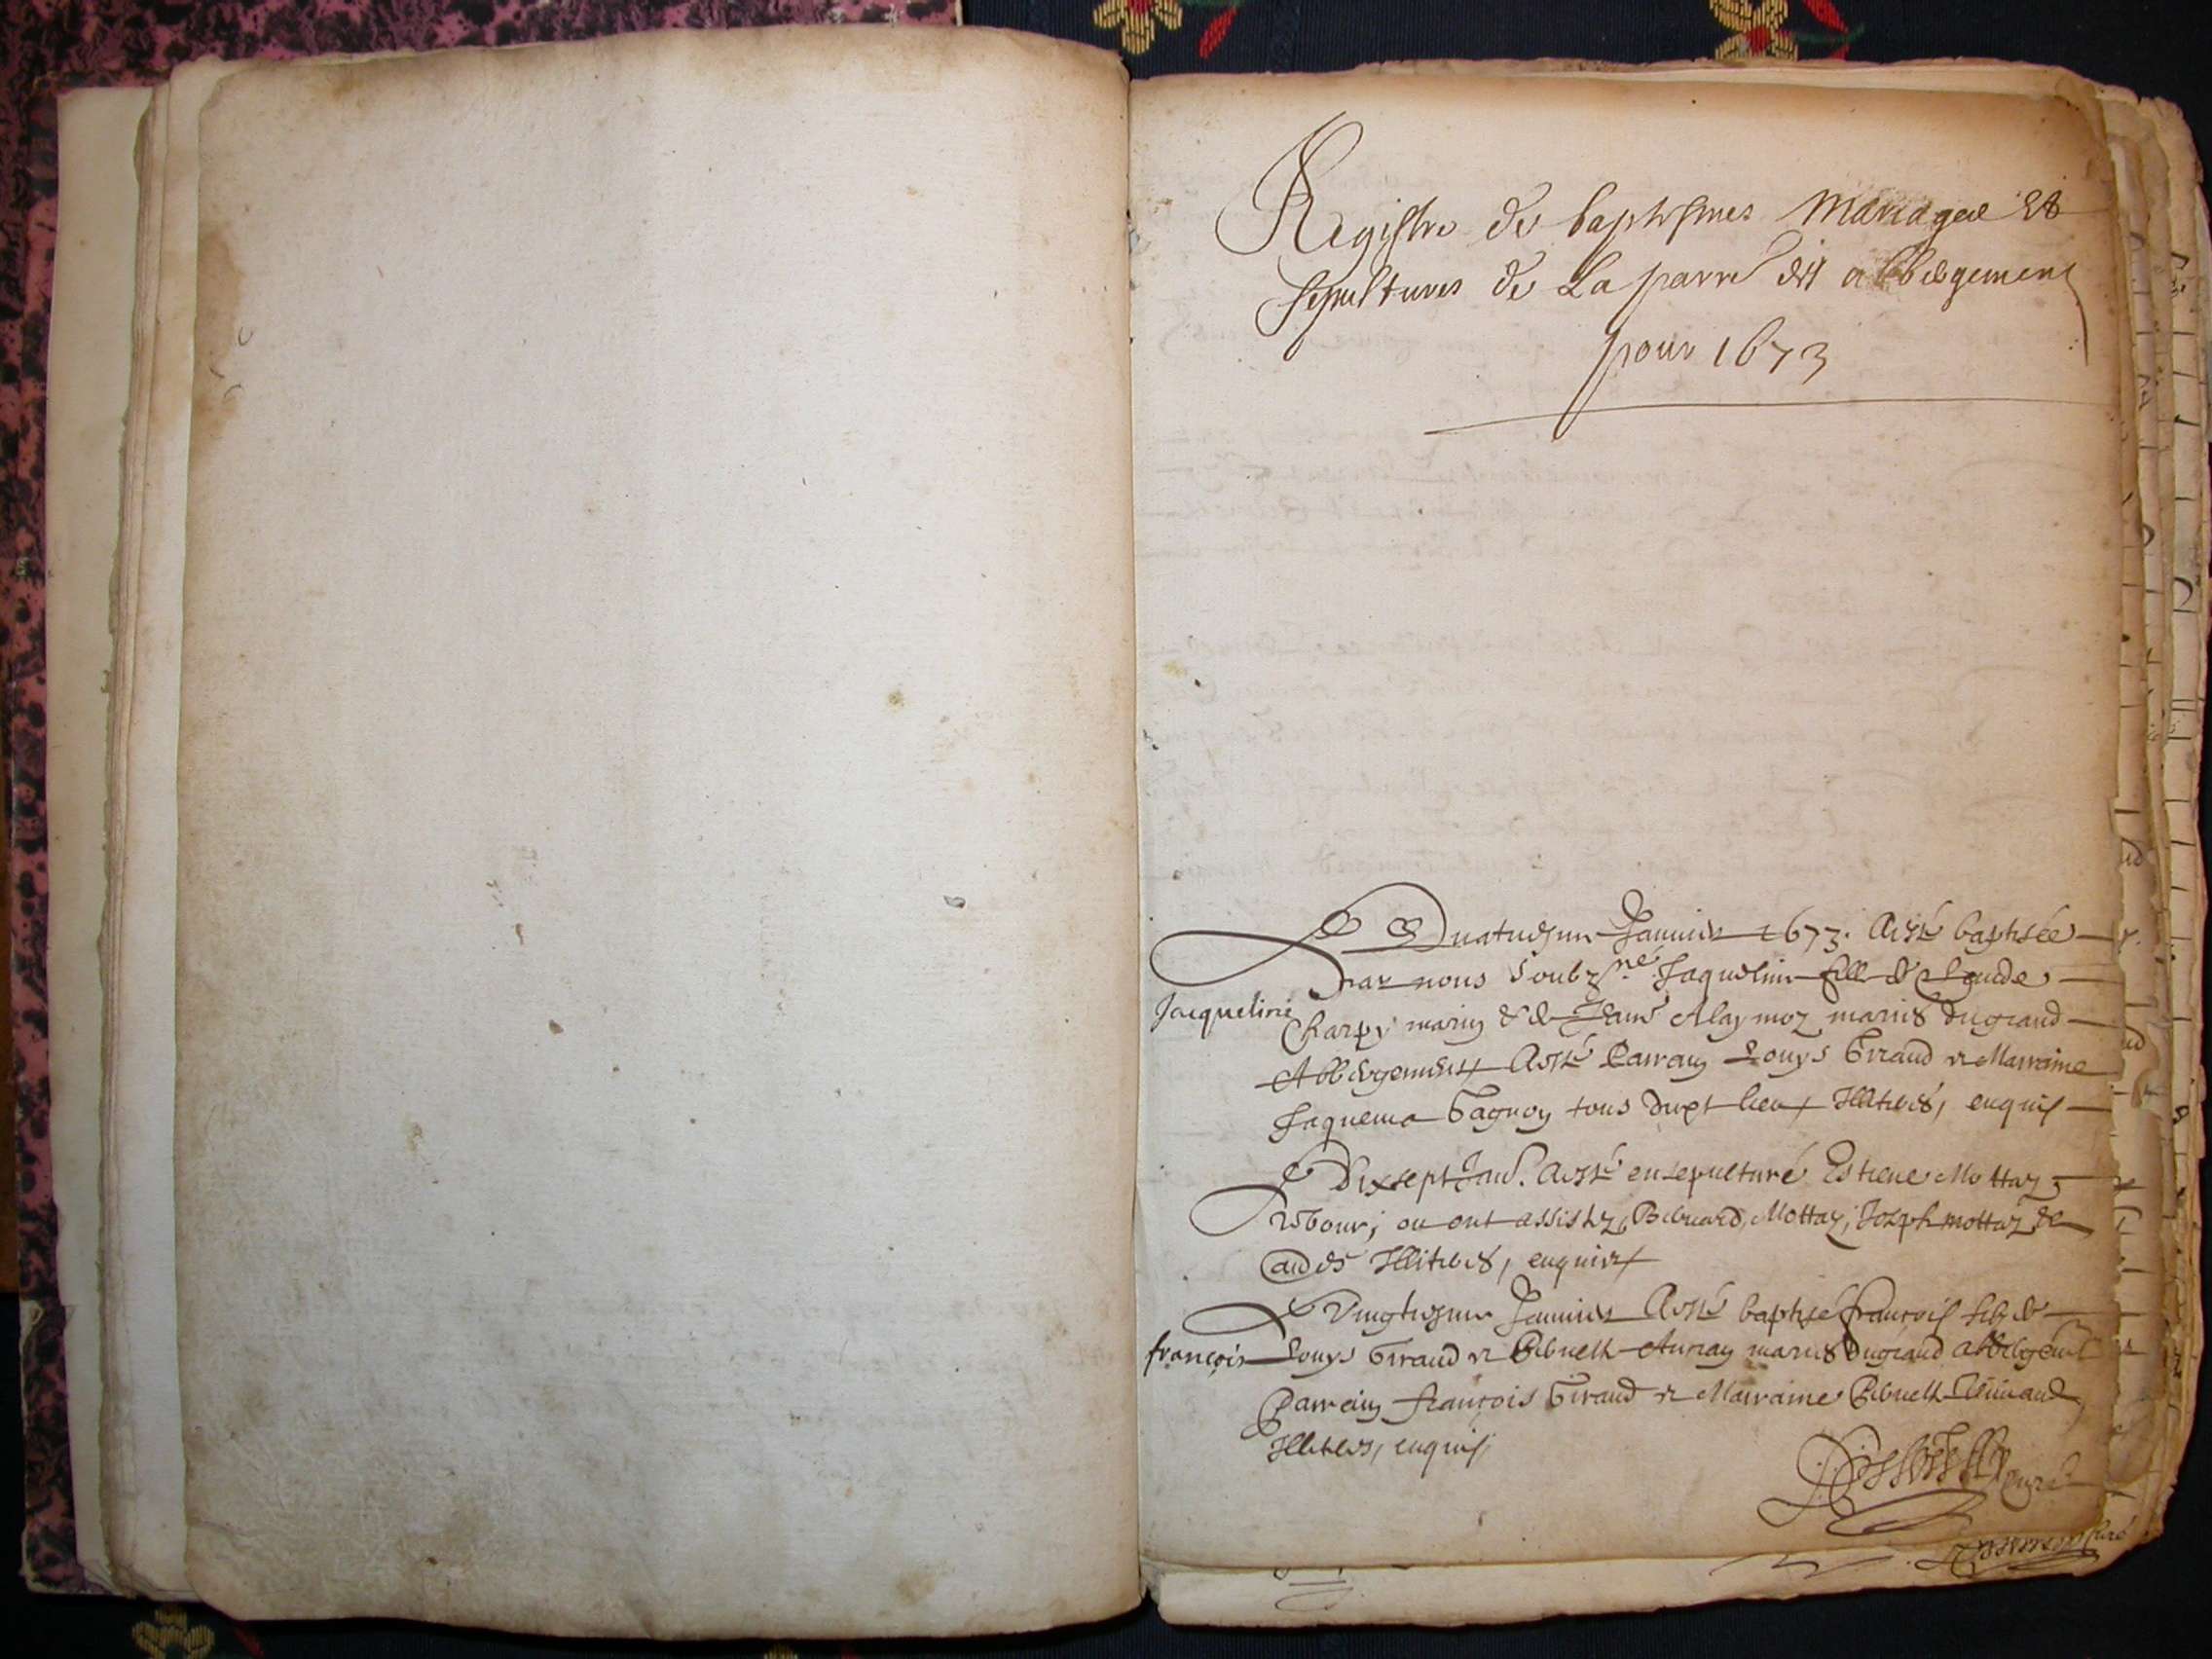 Registre de baptesmes Mariages et
sepultures de La parre des abbergement
pour 1673
Le Quatriesme Januier 1673. A esté baptisée
par nous soubz.né Jaqueline fille de Claude
Jacqueline
Charpy mariy & de Jeane Alaymoz mariés du grand
Abbergement A esté Parrain Louys Giraud et Marraine
Jaquema tous dudt lieu Illiterés, enquis
Le Dixsept Janv. A esté ensepulturé Estiene Mottaz
ou ont assistez Bernard Mottaz, Joseph mottaz &
autres Illiterés, enquis
Le Vingtiesme Januier A esté baptisé françois filz de
françois
Louys Giraud et Pernette mariés du grand abbergemt
Parrain françois Giraud et Marraine Pernette
Illiterés, enquis
curé
curé